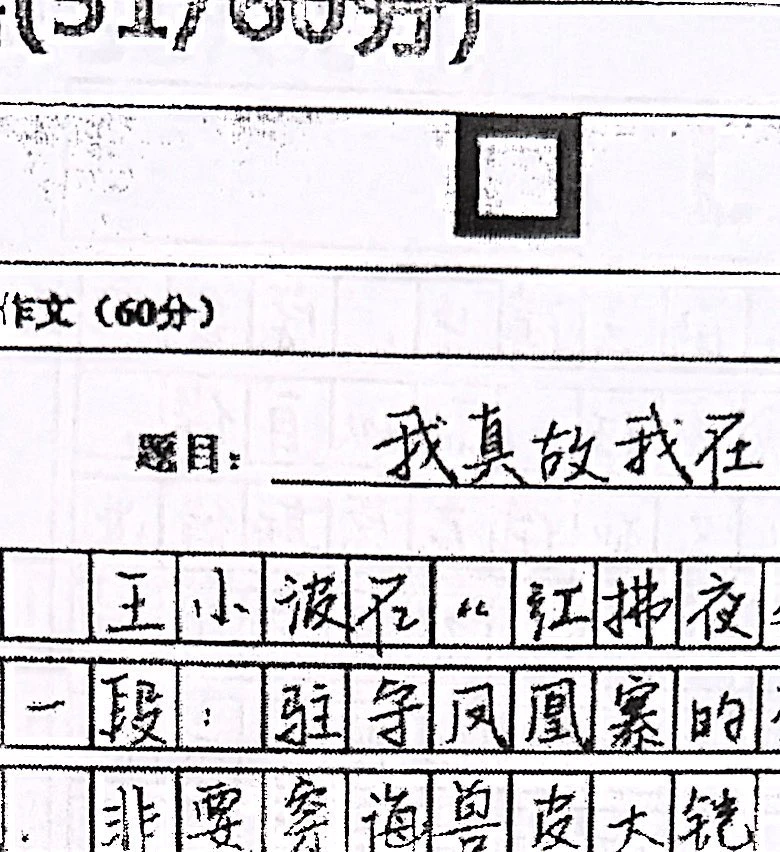 (51/60分)
作文（60分）
题目： 我真故我在
王小波在《红拂夜
一段：驻守凤凰寨的
非要穿海兽皮大铠